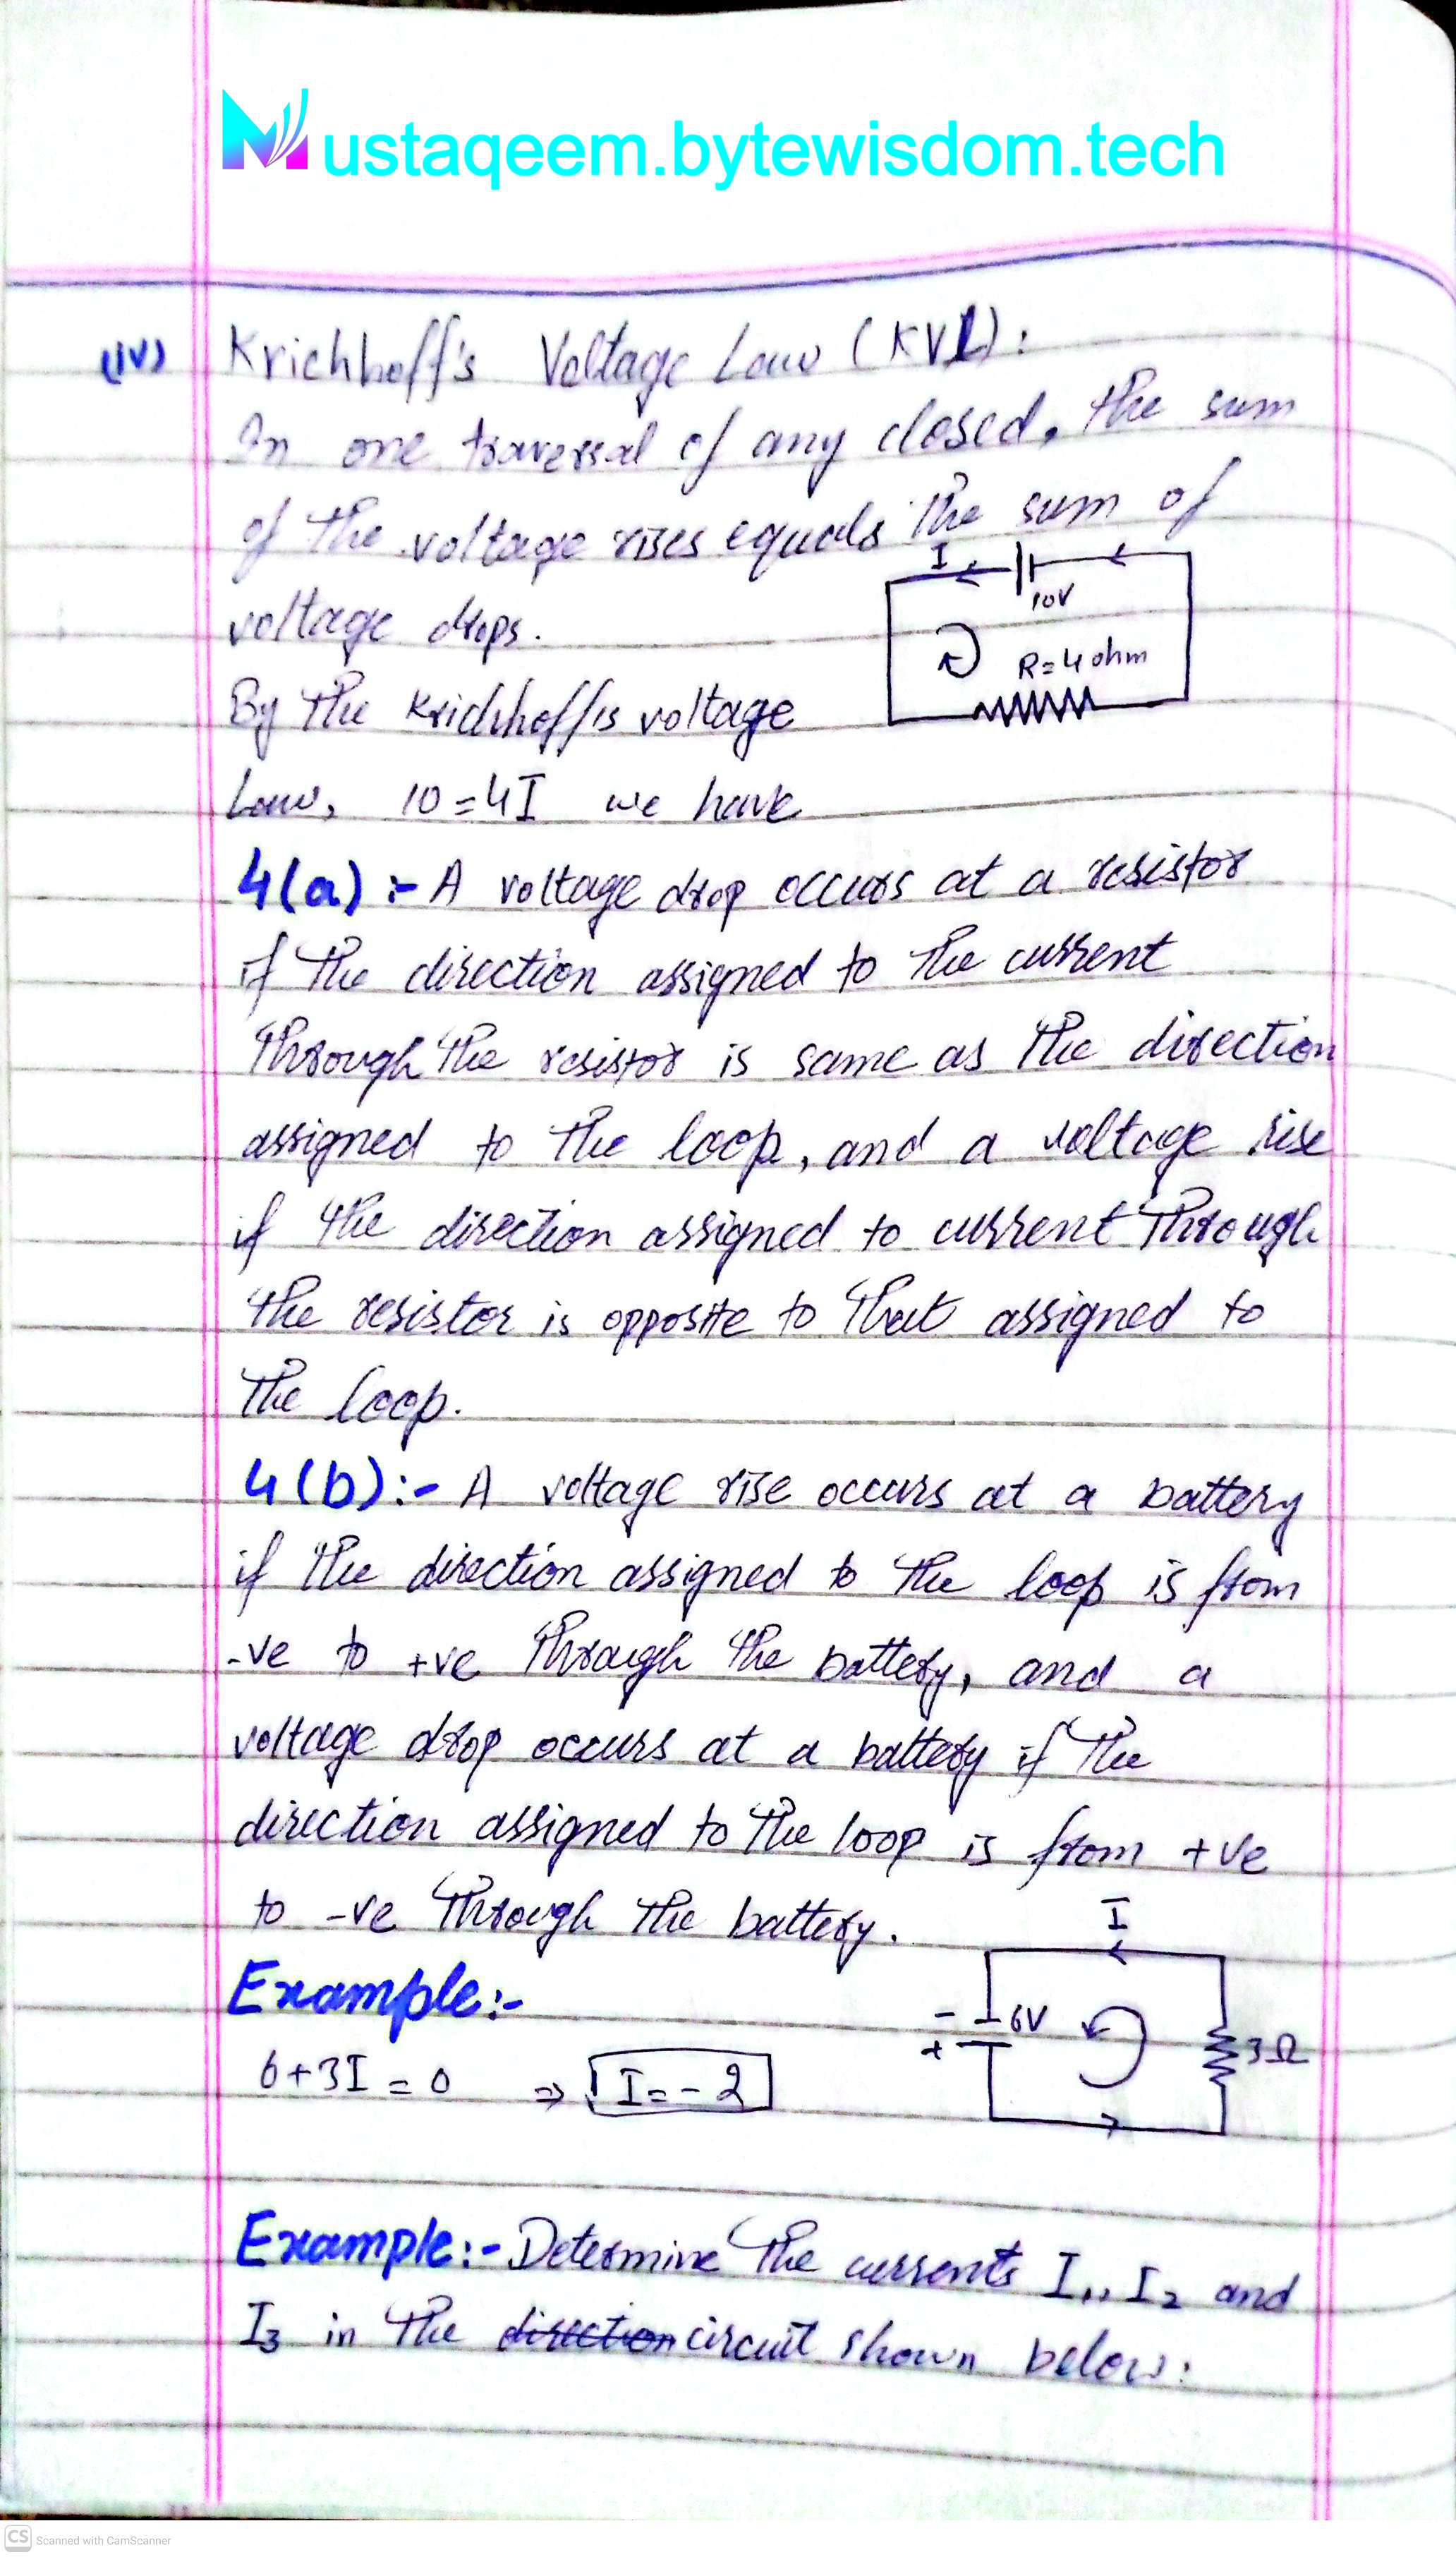 Mustaqeem.bytewisdom.tech
(iv) Krichhoff's Voltage Law (KVL):
In one traversal of any closed, the sum
of the voltage rises equals the sum of
voltage drops.
I
10V
R=4 ohm
By the Krichhoff's voltage
Law, 10=4I we have
4(a) :- A voltage drop occurs at a resistor
if the direction assigned to the current
through the resistor is same as the direction
assigned to the loop, and a voltage rise
if the direction assigned to current through
the resistor is opposite to that assigned to
the loop.
4(b):- A voltage rise occurs at a battery
if the direction assigned to the loop is from
-ve to +ve through the battery, and a
voltage drop occurs at a battery if the
direction assigned to the loop is from +ve
to -ve through the battery.
I
Example:-
- 6V
+
3Ω
6+3I=0 ⇒ I=-2
Example:- Determine the currents I1, I2 and
I3 in the direction circuit shown below:
CS Scanned with CamScanner